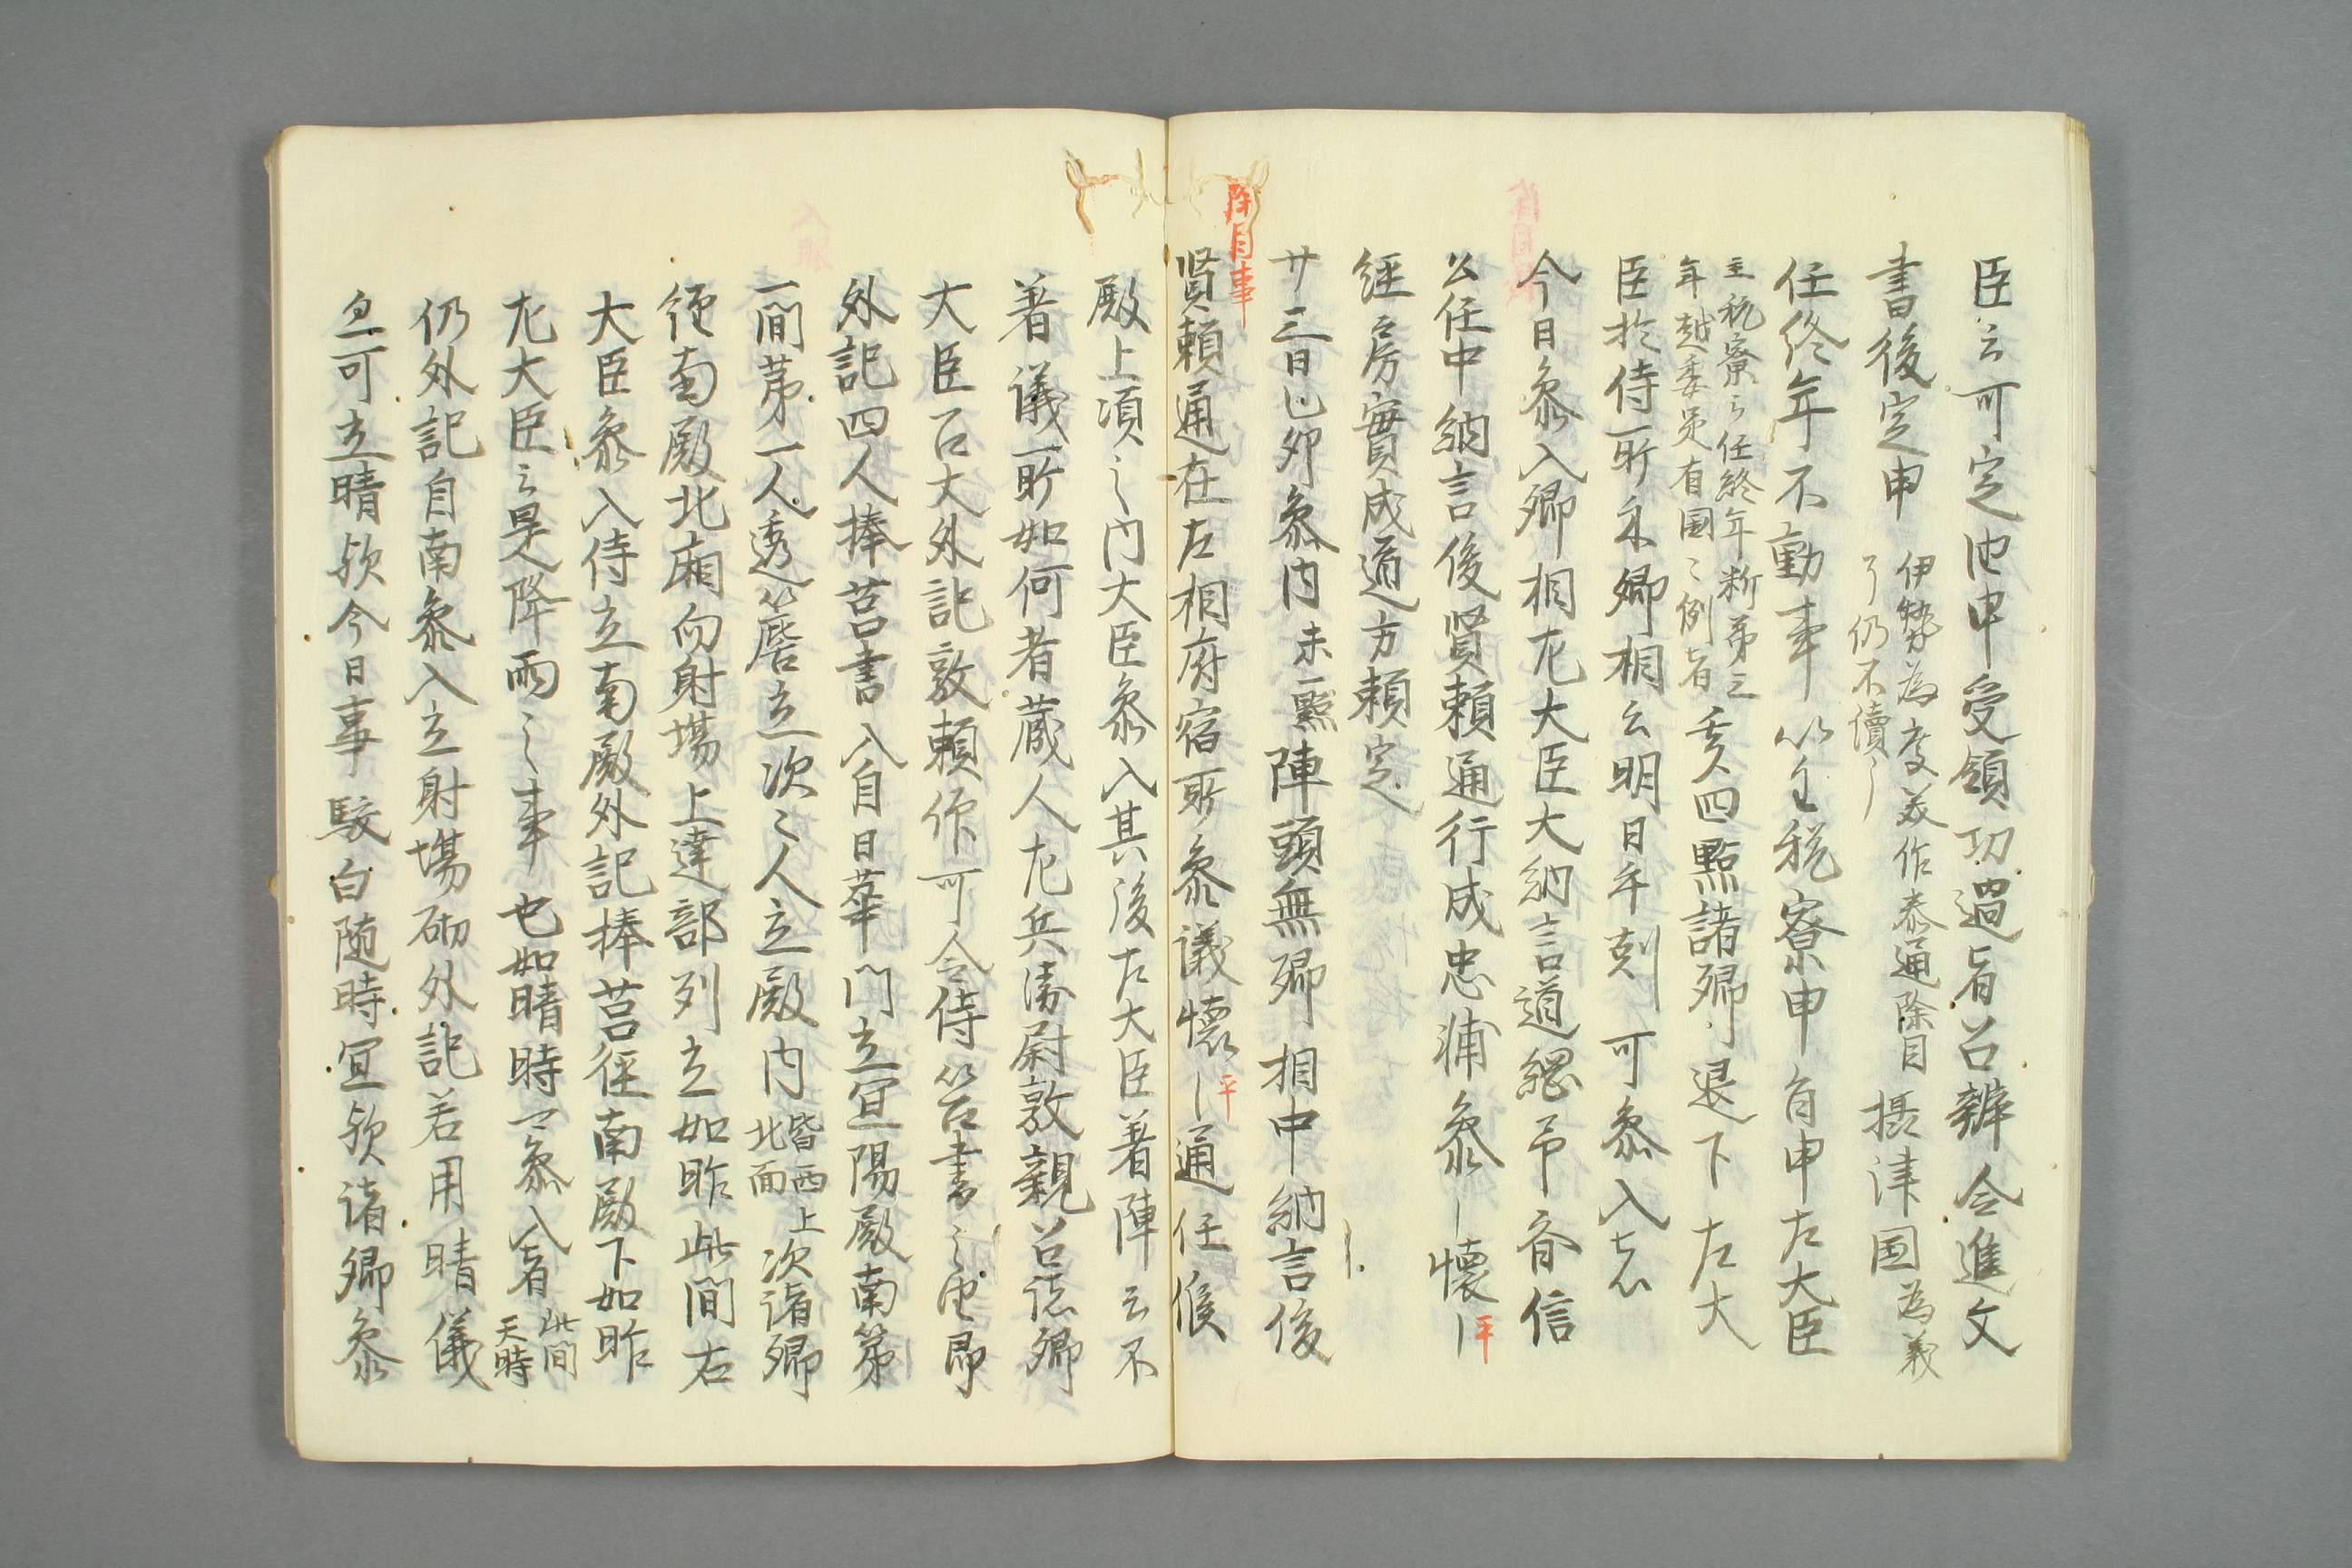 臣云可定池申受領功過者召辨令進文
書後定申 伊勢為度美作泰通除目
了仍不續之 摂津国為義
任終年不勤事以主税寮申旨申左大臣
主税寮云任終年新第三
年越委員有国々例者 亥四點諸卿退下左大
臣於侍所示卿相云明日午剋可参入者
今日参入卿相左大臣大納言道綱斉信
公任中納言俊賢頼通行成忠浦参ー懐ー平
経房實成通方頼定
除目事
廿三日己卯参内未一點陣頭無卿相中納言俊
賢頼通在左相府宿所参議懐ー平通任候
殿上須之門大臣参入其後左大臣著陣云不
著議所如何者蔵人左兵衛尉敦親召諸卿
大臣召大外記敦頼作可令侍筥書之由即
外記四人捧筥書入自日華門立宜陽殿南第
一間第一人透以簷立次々人立殿内 皆西上
北面 次諸卿
経南殿北廂向射場上達部列立如昨此間右
大臣参入侍立南殿外記捧筥徑南殿下如昨
左大臣云是降雨之事也如晴時可参入者 此間
天時
仍外記自南参入立射場砌外記若用晴儀
忽可立晴歟今日事駮白随時宜歟諸卿参